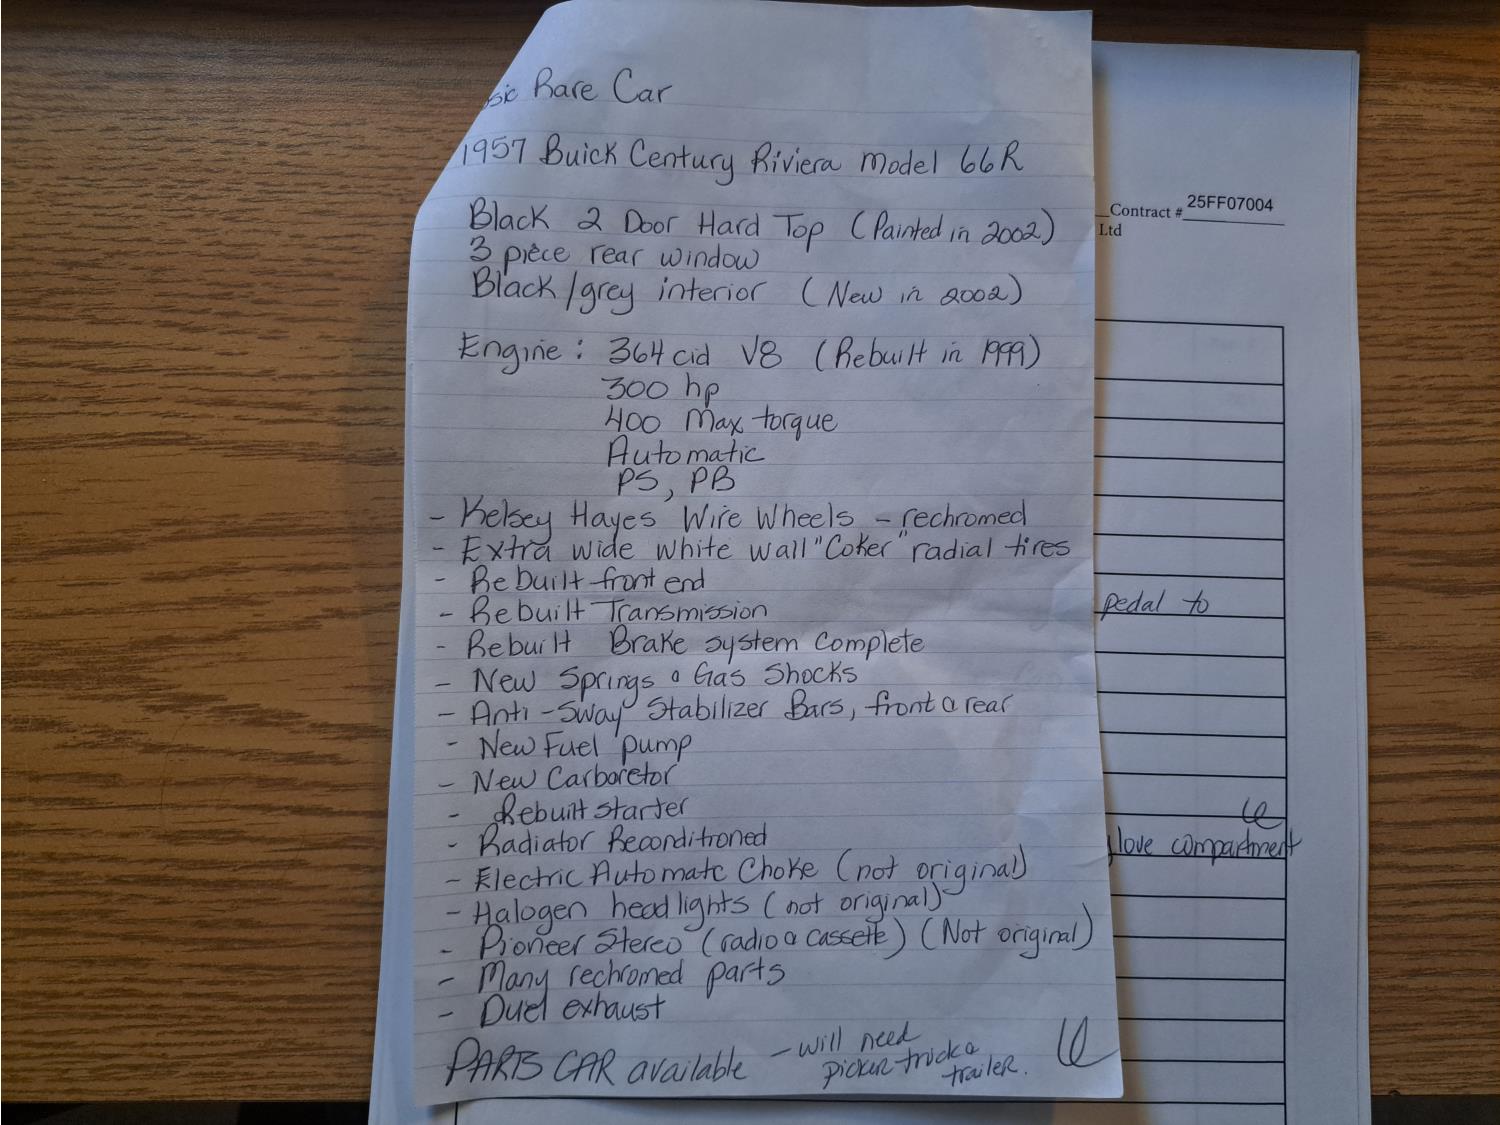 Rare Car
1957 Buick Century Riviera Model 66R
Black 2 Door Hard Top (Painted in 2002)
3 piece rear window
Black/grey interior (New in 2002)
Engine: 364 cid V8 (Rebuilt in 1999)
300 hp
400 Max torque
Automatic
PS, PB
- Kelsey Hayes Wire Wheels - rechromed
- Extra wide white wall "Coker" radial tires
- Rebuilt front end
- Rebuilt Transmission
- Rebuilt Brake system complete
- New Springs & Gas Shocks
- Anti-Sway Stabilizer Bars, front & rear
- New Fuel pump
- New Carboretor
- Rebuilt starter
- Radiator Reconditioned
- Electric Automatc Choke (not original)
- Halogen headlights (not original)
- Pioneer Stereo (radio & cassette) (Not original)
- Many rechromed parts
- Duel exhaust
PARTS CAR available - will need
picker truck &
trailer.
Contract # 25FF07004
Ltd
pedal to
love compartment